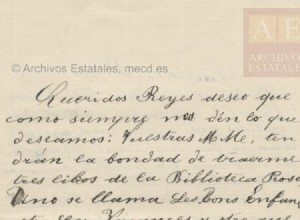 A E
ARCHIVOS
ESTATALES
© Archivos Estatales, mecd.es
Queridos Reyes deseo que
como siempre nos den lo que
deseamos: Vuestras M.M.e, ten
drán la bondad de traerme
tres libos de la Biblioteca Rosa
Uno se llama Les Bons Enfan